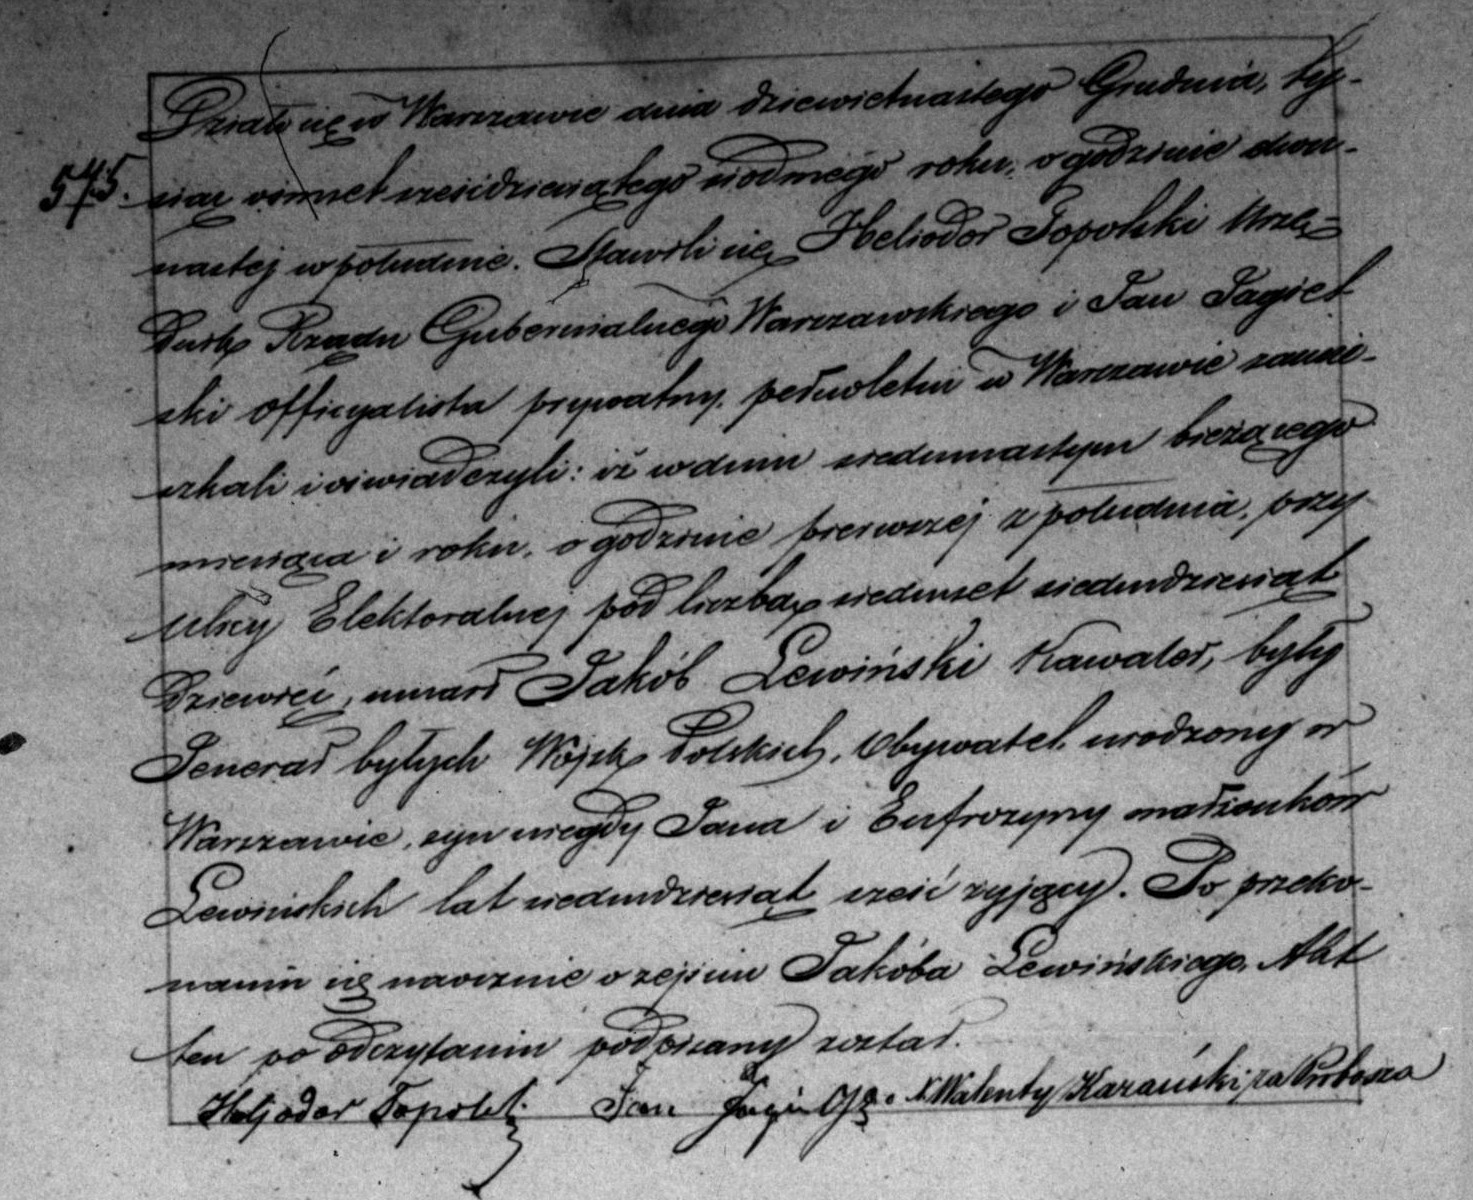 575.
Działo się w Warszawie dnia dziewiętnastego Grudnia, ty-
siąc ośmset sześćdziesiątego siódmego roku, o godzinie dwu-
nastej w południe. Stawili się Heliodor Topolski Urzę-
dnik Rządu Gubernialnego Warszawskiego i Jan Jagiel-
ski officyalista prywatny, pełnoletni w Warszawie zamie-
szkali i oświadczyli: iż w dniu siedmnastym bieżącego
miesiąca i roku, o godzinie pierwszej z południa, przy
ulicy Elektoralnej pod liczbą siedmset siedmdziesiąt
dziewięć, umarł Jakób Lewiński Kawaler, były
Jenerał byłych Wojsk Polskich, Obywatel, urodzony w
Warszawie, syn niegdy Jana i Eufrozyny małżonków
Lewińskich lat siedmdziesiąt sześć żyjący. Po przeko-
naniu się naocznie o zejściu Jakóba Lewińskiego, Akt
ten po odczytaniu podpisany został.
Heljodor Topolski Jan X Walenty Kazański za Proboszcza